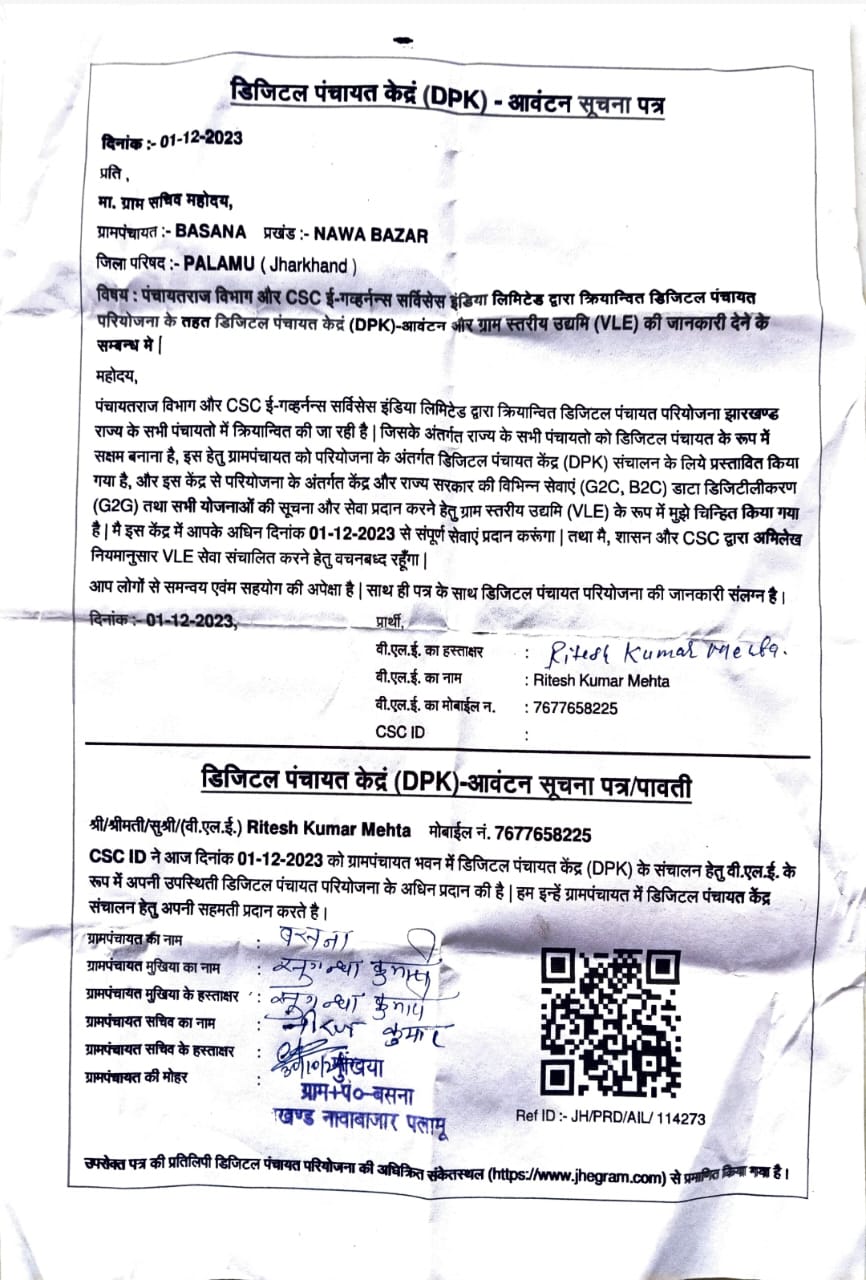 डिजिटल पंचायत केद्रं (DPK) - आवंटन सूचना पत्र
दिनांक :- 01-12-2023
प्रति ,
मा. ग्राम सचिव महोदय,
ग्रामपंचायत :- BASANA प्रखंड :- NAWA BAZAR
जिला परिषद :- PALAMU ( Jharkhand )
विषय : पंचायतराज विभाग और CSC ई-गव्हर्नन्स सर्विसेस इंडिया लिमिटेड द्वारा क्रियान्वित डिजिटल पंचायत
परियोजना के तहत डिजिटल पंचायत केद्रं (DPK)-आवंटन और ग्राम स्तरीय उद्यमि (VLE) की जानकारी देने के
सम्बन्ध मे |
महोदय,
पंचायतराज विभाग और CSC ई-गव्हर्नन्स सर्विसेस इंडिया लिमिटेड द्वारा क्रियान्वित डिजिटल पंचायत परियोजना झारखण्ड
राज्य के सभी पंचायतो में क्रियान्वित की जा रही है | जिसके अंतर्गत राज्य के सभी पंचायतो को डिजिटल पंचायत के रूप में
सक्षम बनाना है, इस हेतु ग्रामपंचायत को परियोजना के अंतर्गत डिजिटल पंचायत केंद्र (DPK) संचालन के लिये प्रस्तावित किया
गया है, और इस केंद्र से परियोजना के अंतर्गत केंद्र और राज्य सरकार की विभिन्न सेवाएं (G2C, B2C) डाटा डिजिटीलीकरण
(G2G) तथा सभी योजनाओं की सूचना और सेवा प्रदान करने हेतु ग्राम स्तरीय उद्यमि (VLE) के रूप में मुझे चिन्हित किया गया
है | मै इस केंद्र में आपके अधिन दिनांक 01-12-2023 से संपूर्ण सेवाएं प्रदान करूंगा | तथा मै, शासन और CSC द्वारा अभिलेख
नियमानुसार VLE सेवा संचालित करने हेतु वचनबध्द रहूँगा |
आप लोगों से समन्वय एवंम सहयोग की अपेक्षा है | साथ ही पत्र के साथ डिजिटल पंचायत परियोजना की जानकारी संलग्न है |
दिनांक :- 01-12-2023, प्रार्थी,
वी.एल.ई. का हस्ताक्षर : Ritesh Kumar Mehta.
वी.एल.ई. का नाम : Ritesh Kumar Mehta
वी.एल.ई. का मोबाईल न. : 7677658225
CSC ID :
डिजिटल पंचायत केद्रं (DPK)-आवंटन सूचना पत्र/पावती
श्री/श्रीमती/सुश्री/(वी.एल.ई.) Ritesh Kumar Mehta मोबाईल नं. 7677658225
CSC ID ने आज दिनांक 01-12-2023 को ग्रामपंचायत भवन में डिजिटल पंचायत केंद्र (DPK) के संचालन हेतु वी.एल.ई. के
रूप में अपनी उपस्थिती डिजिटल पंचायत परियोजना के अधिन प्रदान की है | हम इन्हें ग्रामपंचायत में डिजिटल पंचायत केंद्र
संचालन हेतु अपनी सहमती प्रदान करते है |
ग्रामपंचायत का नाम : बसना
ग्रामपंचायत मुखिया का नाम : कुमारी
ग्रामपंचायत मुखिया के हस्ताक्षर : कुमारी
ग्रामपंचायत सचिव का नाम : नीरज कुमार
ग्रामपंचायत सचिव के हस्ताक्षर :
ग्रामपंचायत की मोहर :
मुखिया
ग्राम+पं०-बसना
खण्ड नावाबाजार पलामू
Ref ID :- JH/PRD/AIL/ 114273
उपरोक्त पत्र की प्रतिलिपी डिजिटल पंचायत परियोजना की अधिक्रित संकेतस्थल (https://www.jhegram.com) से प्रमाणित किया गया है |